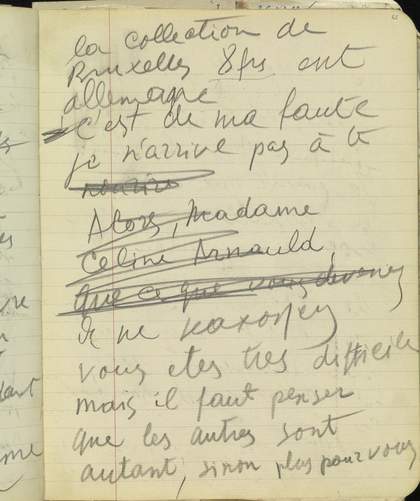 la collection de
Bruxelles 8 frs ont
allemagne
C'est de ma faute
je n'arrive pas à te
Alors, Madame
Celine Arnauld,
que ce que vous devenez
Je ne
vous etes tres difficile
mais il faut penser
que les autres sont
autant, sinon plus pour vous